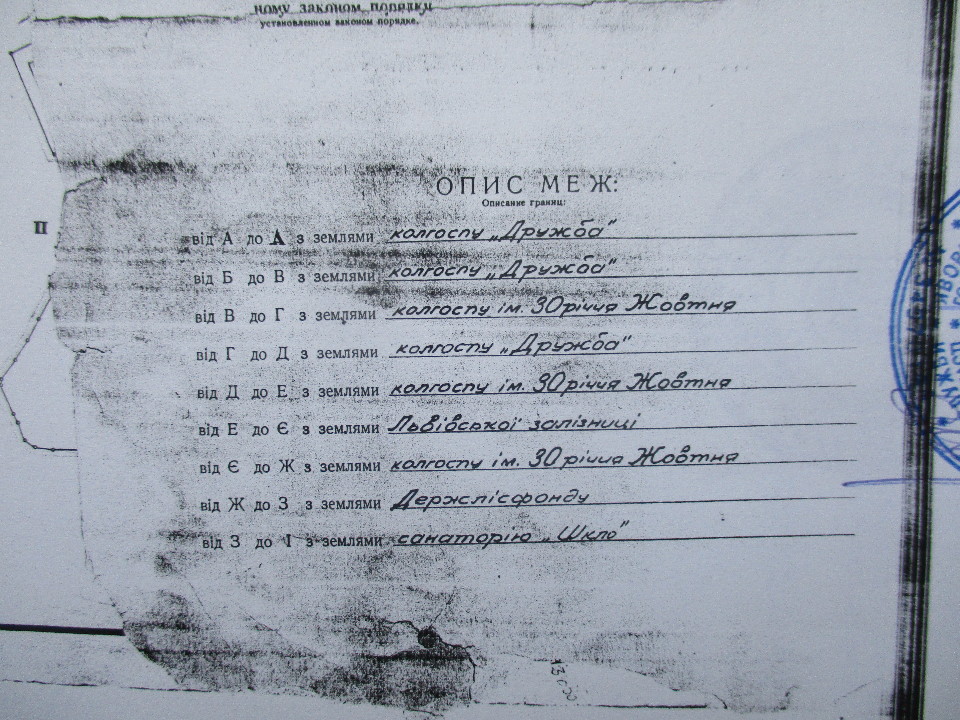 ному законом порядку
установленном законом порядке.
П
ОПИС МЕЖ:
Описание границ:
від А до А з землями колгоспу „Дружба"
від Б до В з землями колгоспу „Дружба"
від В до Г з землями колгоспу ім. 30річчя Жовтня
від Г до Д з землями колгоспу „Дружба"
від Д до Е з землями колгоспу ім. 30річчя Жовтня
від Е до Є з землями Львівської залізниці
від Є до Ж з землями колгоспу ім. 30річчя Жовтня
від Ж до З з землями Держлісфонду
від З до І з землями санаторію „Шкло"